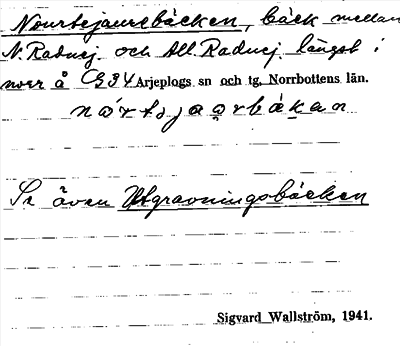 Nourtejaurebäcken, bäck mellan
N. Raduej. och All. Raduej. längst i
norr å G34 Arjeplogs sn och tg, Norrbottens län.
Se även Utgravningsbäcken
Sigvard Wallström, 1941.